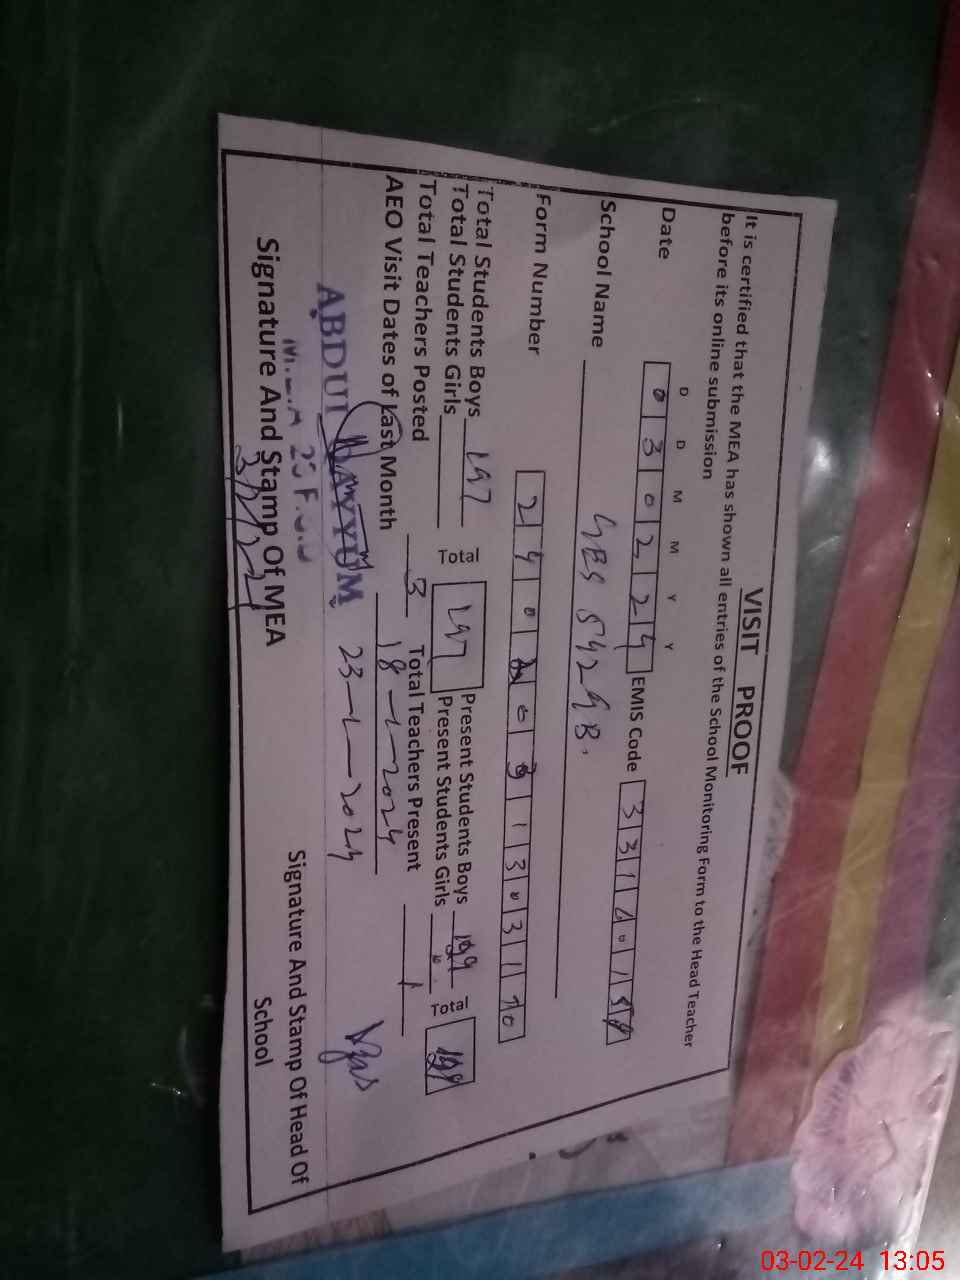 VISIT PROOF
It is certified that the MEA has shown all entries of the School Monitoring Form to the Head Teacher
before its online submission
D D M M Y Y
Date 0 3 0 2 2 4 EMIS Code 3 3 1
School Name GES 542 GB.
Form Number 2 4 0 0 1 3 0 3 1 1
Total Students Boys 147 Total 147 Present Students Boys
Total Students Girls Present Students Girls Total
Total Teachers Posted 3 Total Teachers Present 1
AEO Visit Dates of Last Month 18-1-2024
23-1-2024
ABDUL QAYYUM
M.E.A
Signature And Stamp Of MEA
Signature And Stamp Of Head Of
School
03-02-24 13:05